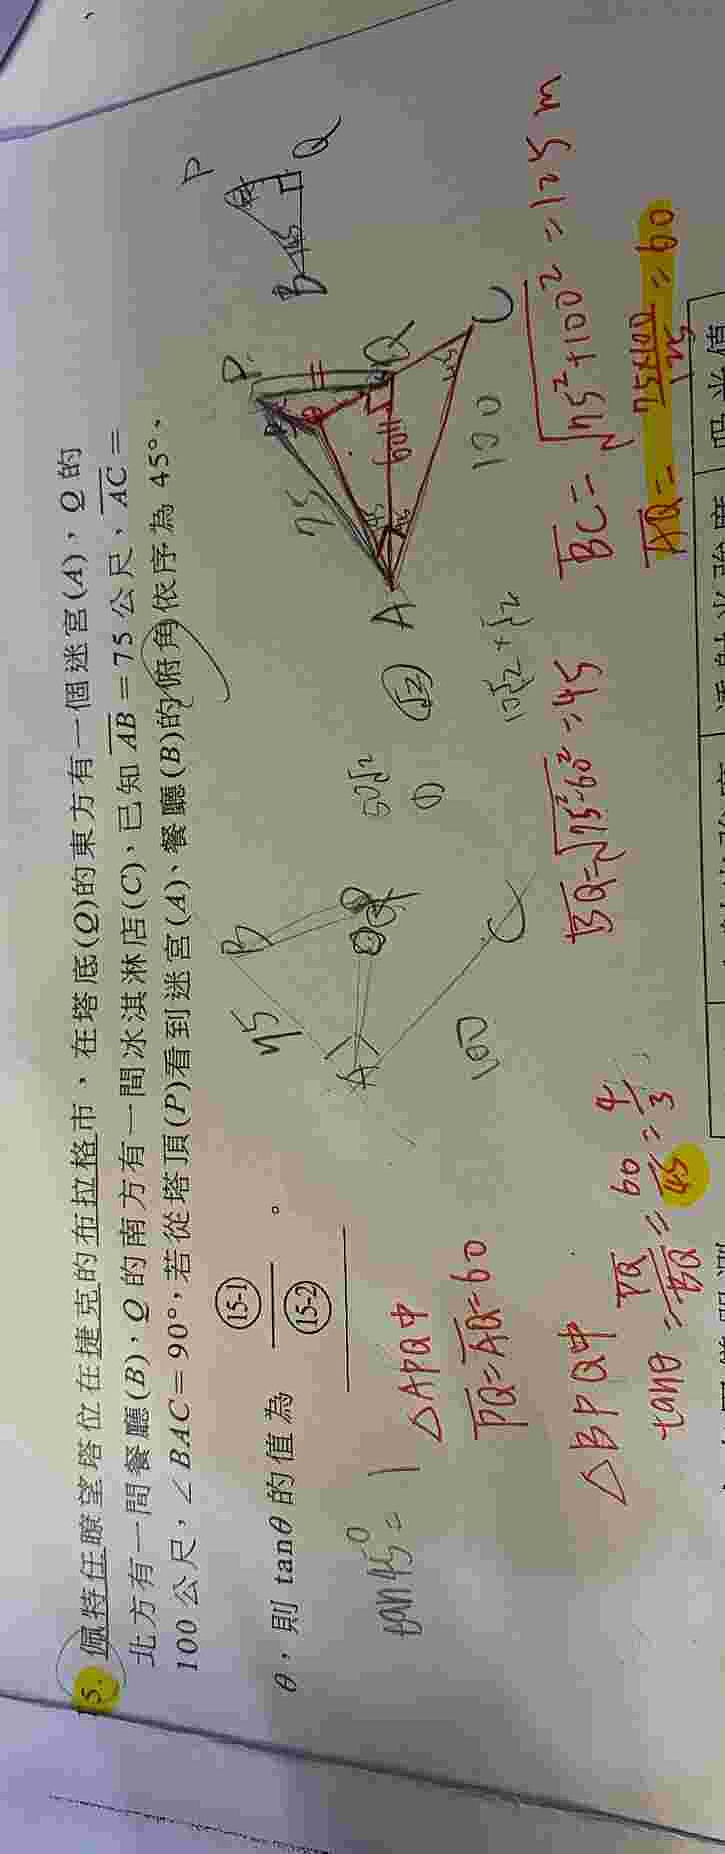 15. 佩特任瞭望塔位在捷克的布拉格市，在塔底(Q)的東方有一個迷宮(A)，Q的
北方有一間餐廳(B)，Q的南方有一間冰淇淋店(C)，已知AB=75公尺，AC=
100公尺，∠BAC=90°，若從塔頂(P)看到迷宮(A)、餐廳(B)的俯角依序為45°、
θ，則 tanθ 的值為 (15-1) 。
(15-2)
tan45°=1
△APQ中
PQ=AQ=60
△BPQ中
tanθ=PQ/BQ=60/45=4/3
A
B
C
75
100
50√2
(1)
(√2)
BQ=√75²-60²=45
P
Q
A
C
75
60
100
P
B
Q
BC=√75²+100²=125m
AQ=75×100/125=60